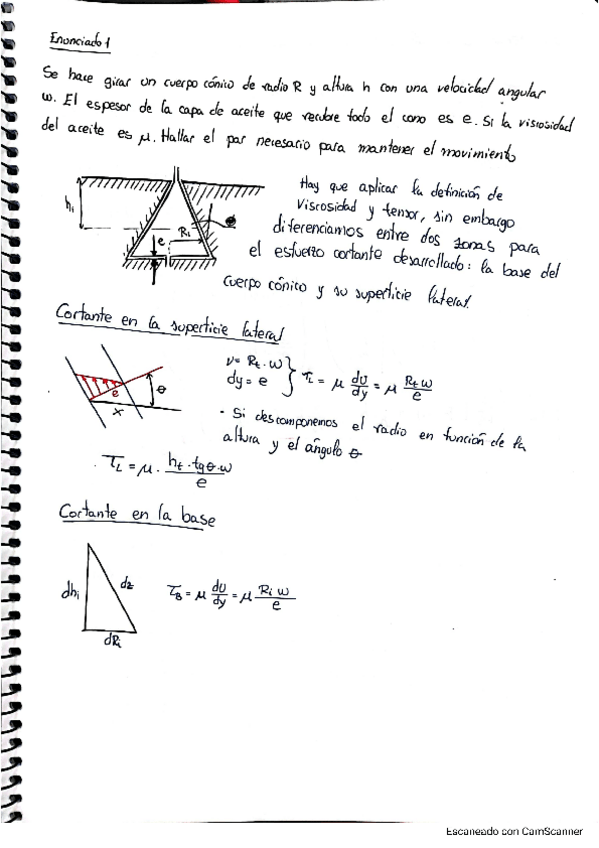 Enunciado 1
Se hace girar un cuerpo cónico de radio R y altura h con una velocidad angular
ω. El espesor de la capa de aceite que recubre todo el cono es e. Si la viscosidad
del aceite es μ. Hallar el par necesario para mantener el movimiento
hi
e
Ri
Hay que aplicar la definición de
viscosidad y tensor, sin embargo
diferenciamos entre dos zonas para
el esfuerzo cortante desarrollado: la base del
cuerpo cónico y su superficie lateral.
Cortante en la superficie lateral
e
x
θ
v = Rt . ω
dy = e
} τL = μ dU/dy = μ Rt ω/e
- Si descomponemos el radio en función de la
altura y el ángulo θ
. τL = μ . ht . tgθ . ω/e
Cortante en la base
dhi
dz
dRi
τB = μ dU/dy = μ Ri ω/e
Escaneado con CamScanner